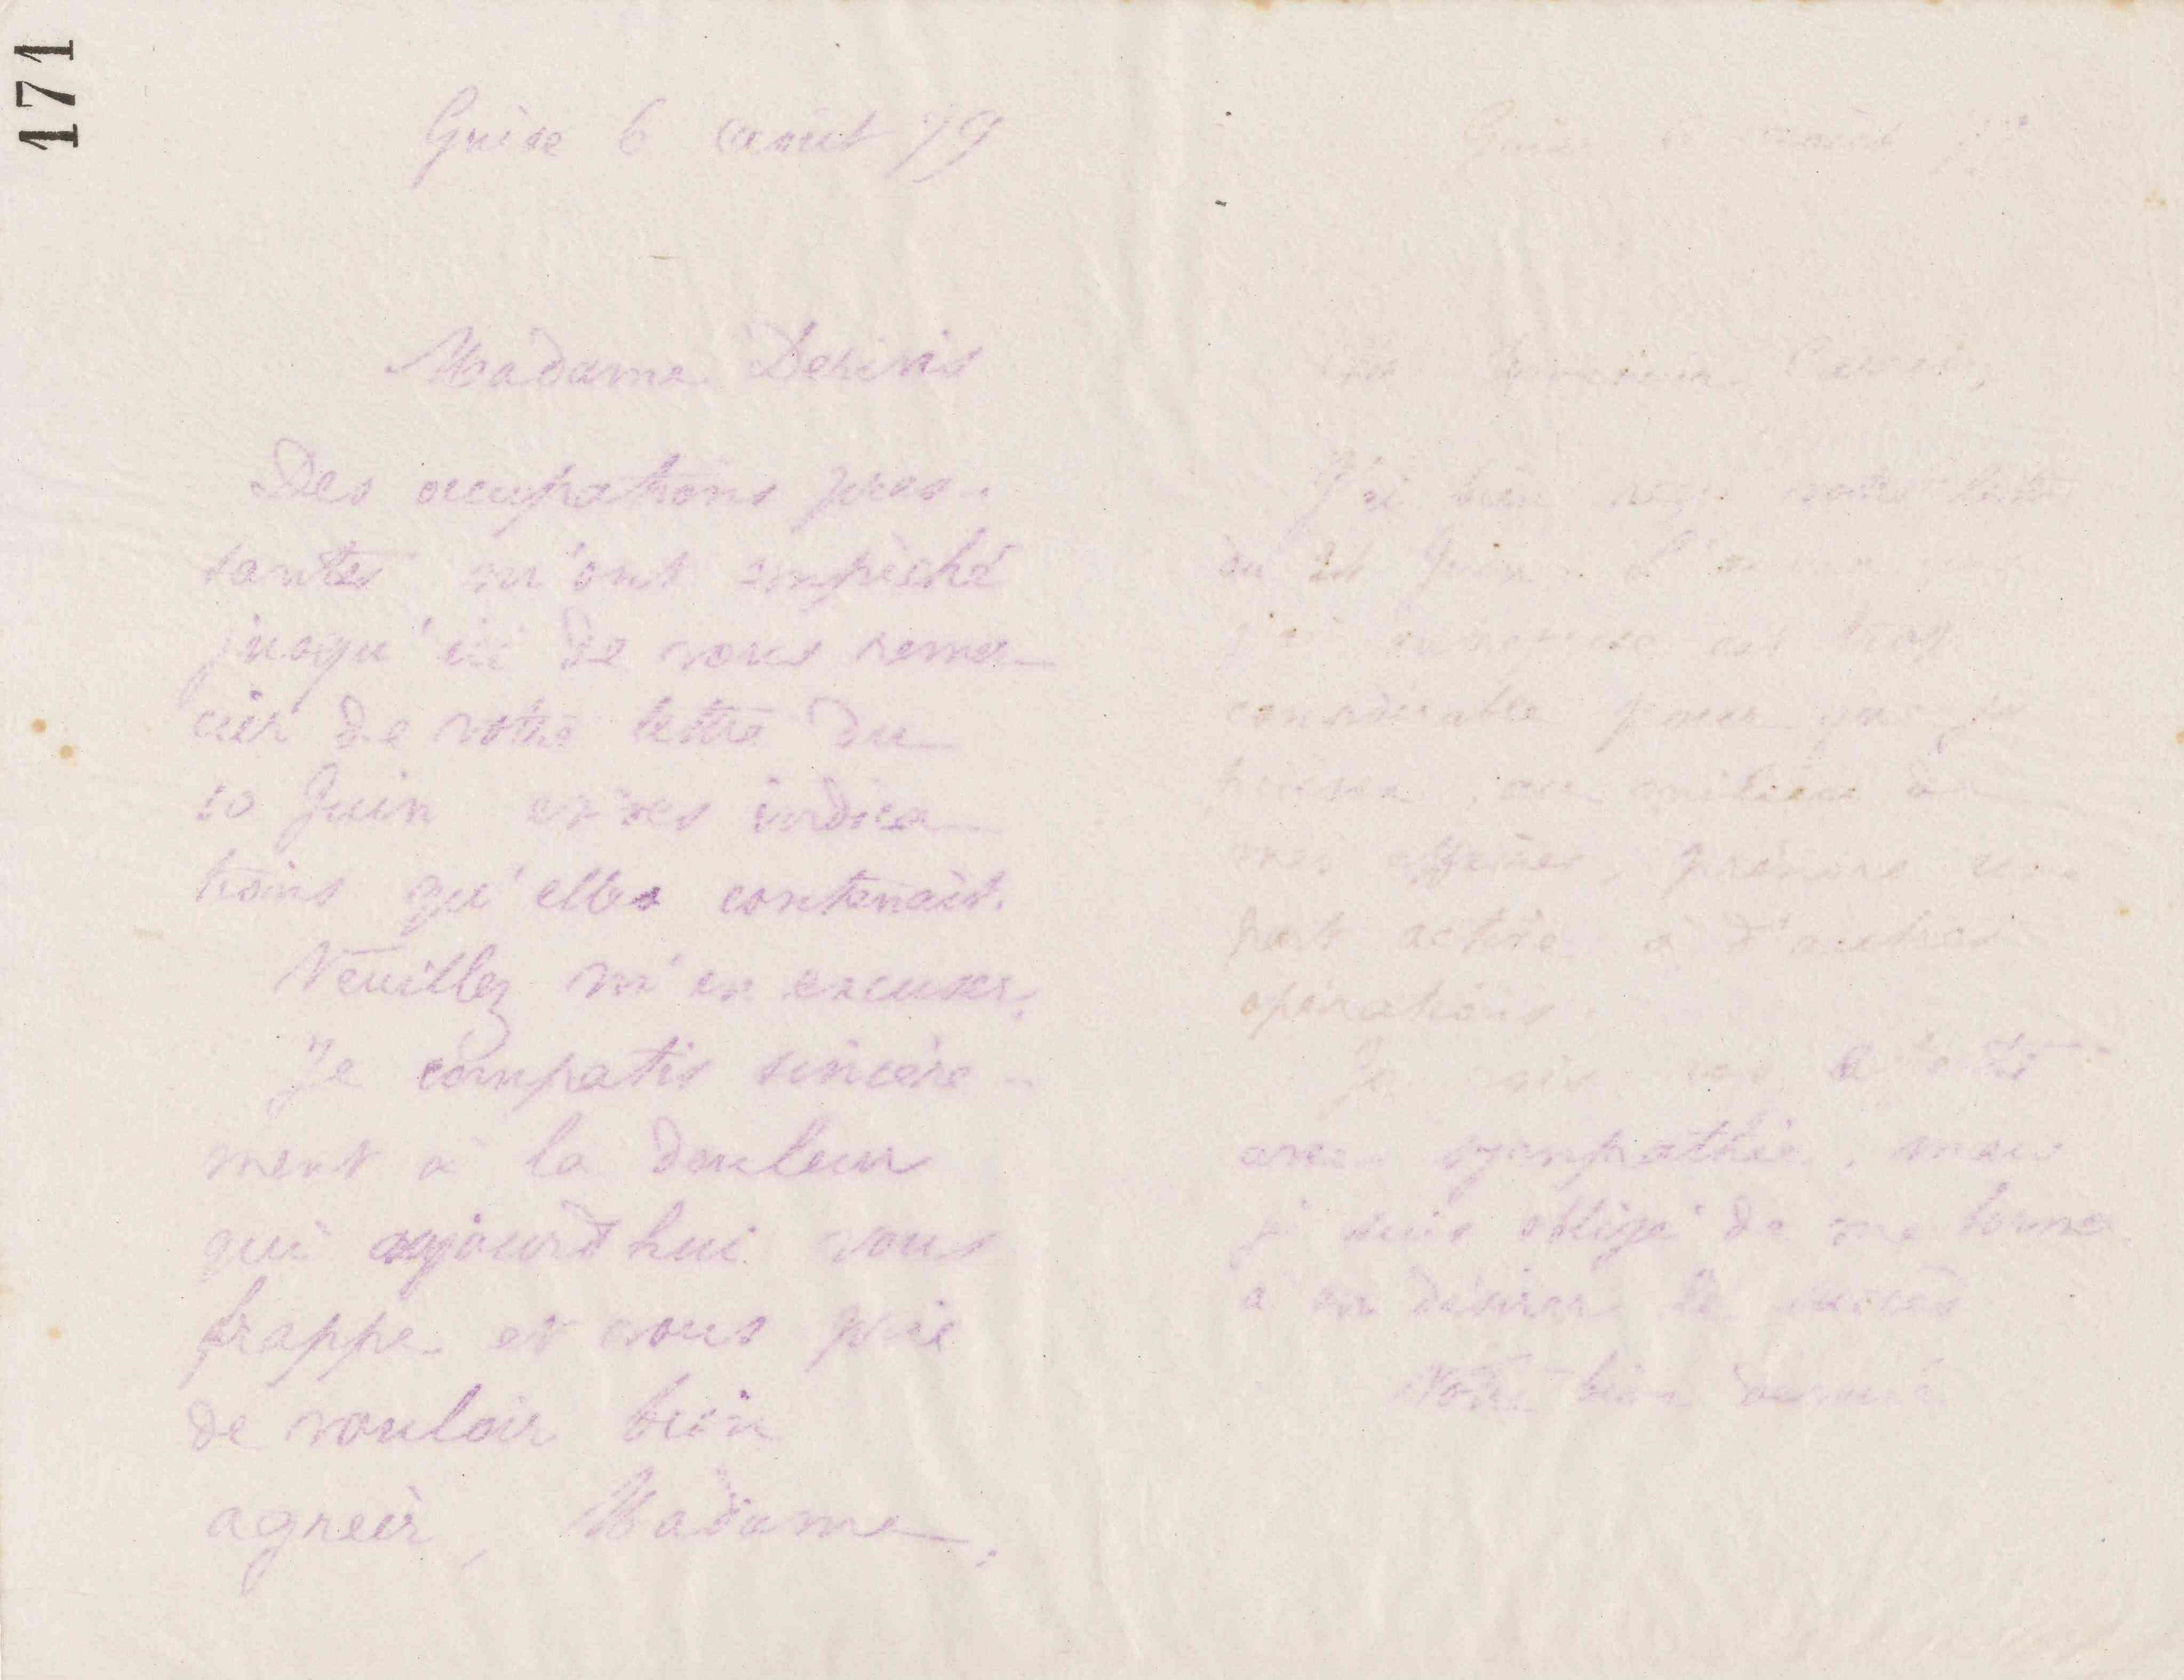 171
Guise 6 août 79
Madame Deninis
Des occupations pres-
santes m'ont empêché
jusqu'ici de vous remer-
cier de votre lettre du
10 Juin et des indica-
tions qu'elle contenait.
Veuillez m'en excuser.
Je compatis sincère-
ment à la douleur
qui aujourd'hui vous
frappe et vous prie
de vouloir bien
agréer, Madame,
Guise 6 août 79
Monsieur
J'ai bien reçu votre lettre
du 21 Juin. L'œuvre que
j'ai entreprise est trop
considérable pour que je
puisse, au milieu de
mes affaires, prendre une
part active à d'autres
opérations.
Je vois
avec sympathie, mais
je suis obligé de me borner
à en désirer le succès
Votre bien dévoué